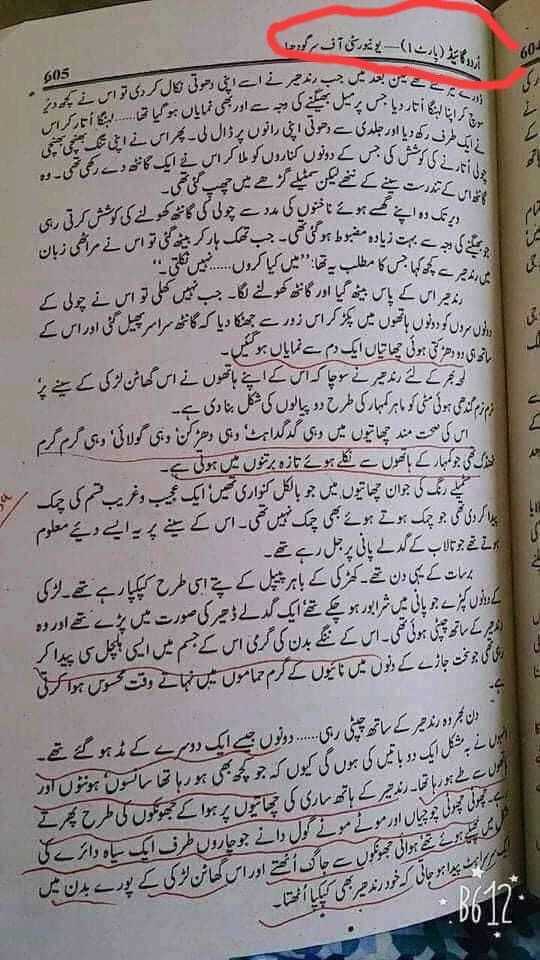 605
اُردو گائیڈ (پارٹ 1) — یونیورسٹی آف سرگودھا
604
بعد میں جب رندھیر نے اسے اپنی دھوتی نکال کر دی تو اس نے کچھ دیر
سوچ کر اپنا لہنگا اُتار دیا جس پر میل بھیگنے کی وجہ سے اور بھی نمایاں ہو گیا تھا..... لہنگا اُتار کر اس
نے ایک طرف رکھ دیا اور جلدی سے دھوتی اپنی رانوں پر ڈال لی۔ پھر اس نے اپنی تنگ بھنچی بھنچی
چولی اُتارنے کی کوشش کی جس کے دونوں کناروں کو ملا کر اس نے ایک گانٹھ دے رکھی تھی۔ وہ
گانٹھ اس کے تندرست سینے کے ننھے لیکن سمٹیلے گڑھے میں چھپ گئی تھی۔
دیر تک وہ اپنے گھسے ہوئے ناخنوں کی مدد سے چولی کی گانٹھ کھولنے کی کوشش کرتی رہی
جو بھیگنے کی وجہ سے بہت زیادہ مضبوط ہو گئی تھی۔ جب تھک ہار کر بیٹھ گئی تو اس نے مراٹھی زبان
میں رندھیر سے کچھ کہا جس کا مطلب یہ تھا: ’’میں کیا کروں......نہیں نکلتی۔‘‘
رندھیر اس کے پاس بیٹھ گیا اور گانٹھ کھولنے لگا۔ جب نہیں کھلی تو اس نے چولی کے
دونوں سروں کو دونوں ہاتھوں میں پکڑ کر اس زور سے جھٹکا دیا کہ گانٹھ سراسر پھیل گئی اور اس کے
ساتھ ہی دو دھڑکتی ہوئی چھاتیاں ایک دم سے نمایاں ہو گئیں۔
لمحہ بھر کے لئے رندھیر نے سوچا کہ اس کے اپنے ہاتھوں نے اس گھاٹن لڑکی کے سینے پر‘
نرم نرم گندھی ہوئی مٹی کو ماہر کمہار کی طرح دو پیالوں کی شکل بنا دی ہے۔
اس کی صحت مند چھاتیوں میں وہی گدگداہٹ‘ وہی دھڑکن‘ وہی گولائی‘ وہی گرم گرم
ٹھنڈک تھی جو کمہار کے ہاتھوں سے نکلے ہوئے تازہ برتنوں میں ہوتی ہے۔
مٹیلے رنگ کی جوان چھاتیوں میں جو بالکل کنواری تھیں‘ ایک عجیب و غریب قسم کی چمک
پیدا کر دی تھی جو چمک ہوتے ہوئے بھی چمک نہیں تھی۔ اس کے سینے پر یہ ایسے دیئے معلوم
ہوتے تھے جو تالاب کے گدلے پانی پر جل رہے تھے۔
برسات کے یہی دن تھے۔ کھڑکی کے باہر پیپل کے پتے اسی طرح کپکپا رہے تھے۔ لڑکی
کے دونوں کپڑے جو پانی میں شرابور ہو چکے تھے‘ ایک گدلے ڈھیر کی صورت میں پڑے تھے اور وہ
رندھیر کے ساتھ چمٹی ہوئی تھی۔ اس کے ننگے بدن کی گرمی اس کے جسم میں ایسی ہلچل سی پیدا کر
رہی تھی جو سخت جاڑے کے دنوں میں نائیوں کے گرم حماموں میں نہاتے وقت محسوس ہوا کرتی
ہے۔
دن بھر وہ رندھیر کے ساتھ چمٹی رہی...... دونوں جیسے ایک دوسرے کے مڈ ہو گئے تھے۔
انہوں نے بہ مشکل ایک دو باتیں کی ہوں گی کیوں کہ جو کچھ بھی ہو رہا تھا سانسوں‘ ہونٹوں اور
ہاتھوں سے طے ہو رہا تھا۔ رندھیر کے ہاتھ ساری کی چھاتیوں پر ہوا کے جھونکوں کی طرح پھرتے
رہے۔ چھوٹی چھوٹی چوچیاں اور موٹے موٹے گول دانے جو چاروں طرف ایک سیاہ دائرے کی
شکل میں پھیلے ہوئے تھے ہوائی جھونکوں سے جاگ اُٹھتے اور اس گھاٹن لڑکی کے پورے بدن میں
ایک سرسراہٹ پیدا ہو جاتی کہ خود رندھیر بھی کپکپا اُٹھتا۔
B612